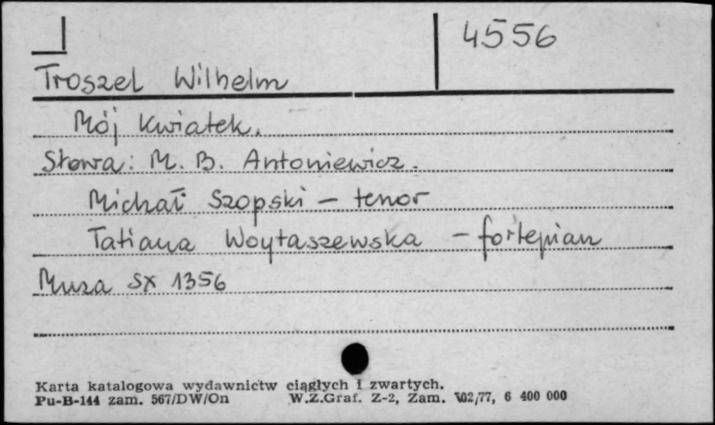 4556
Troszel Wilhelm
Mój kwiatek.
Słowa: M. B. Antoniewicz.
Michał Szopski – tenor
Tatiana Woytaszewska – fortepian
Muza SX 1356
Karta katalogowa wydawnictw ciągłych i zwartych.
Pu-B-144 zam. 567/DW/On W.Z.Graf. Z-2, Zam. 102/77, 6 400 000